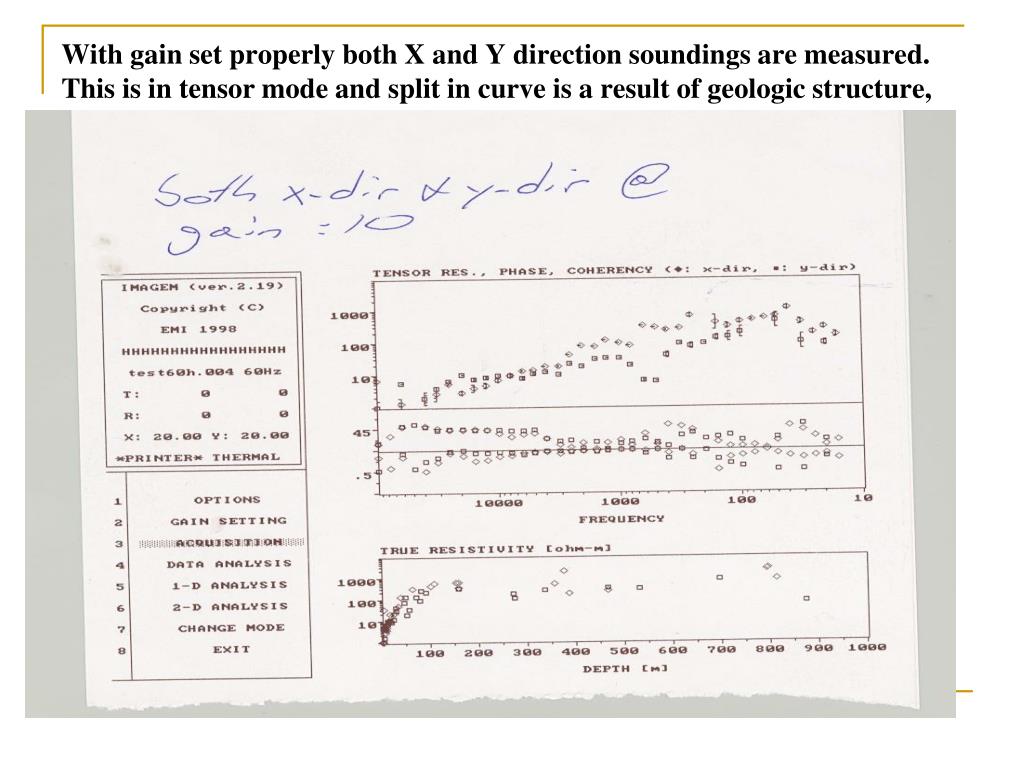 With gain set properly both X and Y direction soundings are measured.
This is in tensor mode and split in curve is a result of geologic structure,
both x-dir & y-dir @
gain = 10
IMAGEM (ver.2.19)
Copyright (C)
EMI 1998
HHHHHHHHHHHHHHHHH
test60h.004 60Hz
T: 0 0
R: 0 0
X: 20.00 Y: 20.00
*PRINTER* THERMAL
1 OPTIONS
2 GAIN SETTING
3 ACQUISITION
4 DATA ANALYSIS
5 1-D ANALYSIS
6 2-D ANALYSIS
7 CHANGE MODE
8 EXIT
TENSOR RES., PHASE, COHERENCY (◆: x-dir, ▪: y-dir)
1000
100
10
45
.5
10000 1000 100 10
FREQUENCY
TRUE RESISTIVITY [ohm-m]
1000
100
10
100 200 300 400 500 600 700 800 900 1000
DEPTH [m]